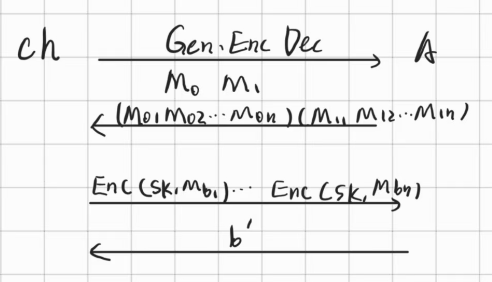 ch Gen. Enc Dec A
M₀ M₁
(M₀₁ M₀₂ ... M₀n) (M₁₁ M₁₂ ... M₁n)
Enc (sk, Mb₁) ... Enc (sk, Mbn)
b'